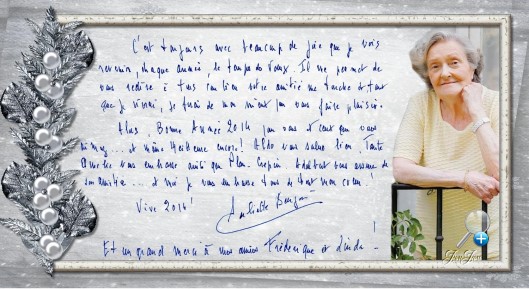 C'est toujours avec beaucoup de joie que je vois
revenir, chaque année, le temps de Vœux. Il me permet de
vous redire à tous combien votre amitié me touche et tant
que je vivrai, je ferai de mon mieux pour vous faire plaisir.
Alors, Bonne Année 2014 pour vous et ceux que vous
aimez... et même Meilleure encore! Aldo vous salue bien, Tante
Amélie vous embrasse ainsi que Plan-Crépin. Adalbert vous assure de
son amitié... et moi je vous embrasse tous de tout mon cœur!
Vive 2014! Juliette Benzoni
Et un grand merci à mes amies Frédérique et Linda!